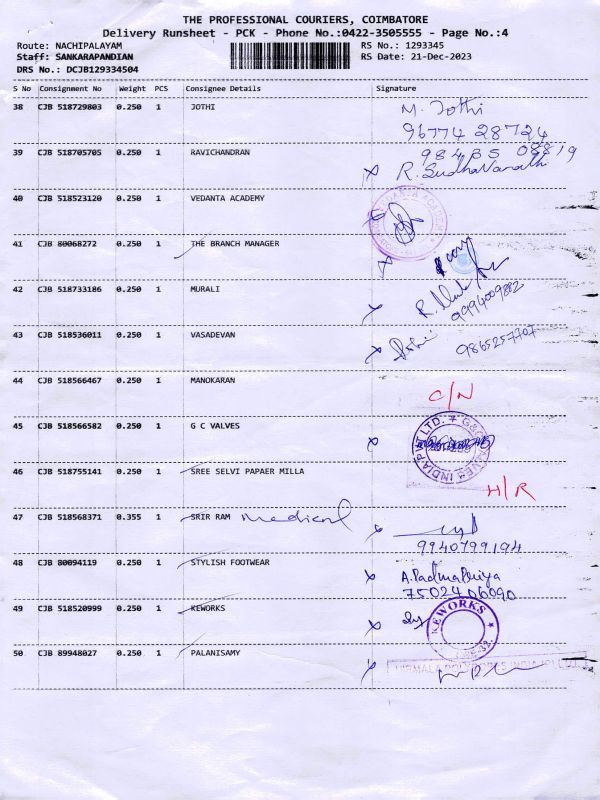 THE PROFESSIONAL COURIERS, COIMBATORE
Delivery Runsheet - PCK - Phone No.:0422-3505555 - Page No.:4
Route: NACHIPALAYAM RS No.: 1293345
Staff: SANKARAPANDIAN RS Date: 21-Dec-2023
DRS No.: DCJB129334504
S No Consignment No Weight PCS Consignee Details Signature
38 CJB 518729803 0.250 1 JOTHI M. Jothi
96774 28724
39 CJB 518705705 0.250 1 RAVICHANDRAN
40 CJB 518523120 0.250 1 VEDANTA ACADEMY
41 CJB 80068272 0.250 1 THE BRANCH MANAGER
42 CJB 518733186 0.250 1 MURALI
9994009882
43 CJB 518536011 0.250 1 VASADEVAN
9865257707
44 CJB 518566467 0.250 1 MANOKARAN C/N
45 CJB 518566582 0.250 1 G C VALVES
INDIA PVT LTD.
46 CJB 518755141 0.250 1 SREE SELVI PAPAER MILLA H/R
47 CJB 518568371 0.355 1 SRIR RAM Medical
9940799194
48 CJB 80094119 0.250 1 STYLISH FOOTWEAR A. Padma Priya
75024 06090
49 CJB 518520999 0.250 1 KEWORKS KEWORKS
50 CJB 89948027 0.250 1 PALANISAMY